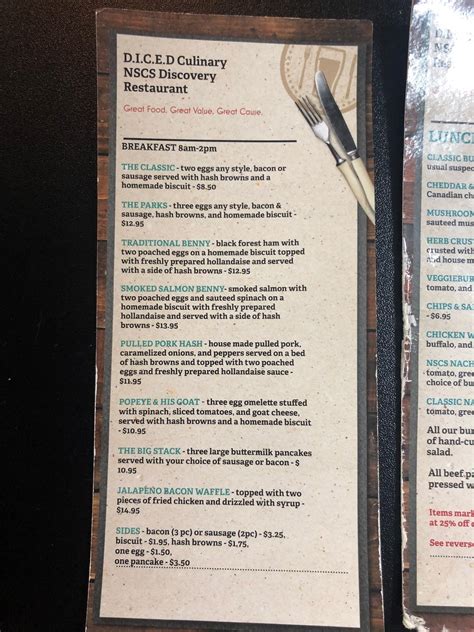 D.I.C.E.D Culinary
NSCS Discovery
Restaurant
Great Food, Great Value, Great Cause.
BREAKFAST 8am-2pm
THE CLASSIC - two eggs any style, bacon or
sausage served with hash browns and a
homemade biscuit - $8.50
THE PARKS - three eggs any style, bacon &
sausage, hash browns, and homemade biscuit -
$12.95
TRADITIONAL BENNY - black forest ham with
two poached eggs on a homemade biscuit topped
with freshly prepared hollandaise and served
with a side of hash browns -
$12.95
SMOKED SALMON BENNY- smoked salmon with
two poached eggs and sauteed spinach on a
homemade biscuit with freshly prepared
hollandaise and served with a side of hash
browns - $13.95
PULLED PORK HASH - house made pulled pork,
caramelized onions, and peppers served on a bed
of hash browns and topped with two poached
eggs and freshly prepared hollandaise sauce -
$11.95
POPEYE & HIS GOAT - three egg omelette stuffed
with spinach, sliced tomatoes, and goat cheese,
served with hash browns and a homemade biscuit
- $10.95
THE BIG STACK - three large buttermilk pancakes
served with your choice of sausage or bacon - $
10.95
JALAPEÑO BACON WAFFLE - topped with two
pieces of fried chicken and drizzled with syrup -
$14.95
SIDES - bacon (3 pc) or sausage (2pc) - $3.25,
biscuit - $1.95, hash browns - $1,75,
one egg - $1.50,
one pancake - $3.50
LUNC
CLASSIC BU
usual suspec
CHEDDAR &
Canadian che
MUSHROOM
sauteed must
HERB CRUST
crusted with
and house m
VEGGIEBUR
tomato, and
CHIPS & SA
- $6.95
CHICKEN W
buffalo, and
NSCS NACH
tomato, gree
choice of bu
CLASSIC NA
tomato, gree
All our bur
of hand-cu
salad.
All beef pa
pressed w
Items mark
at 25% off e
See reverse